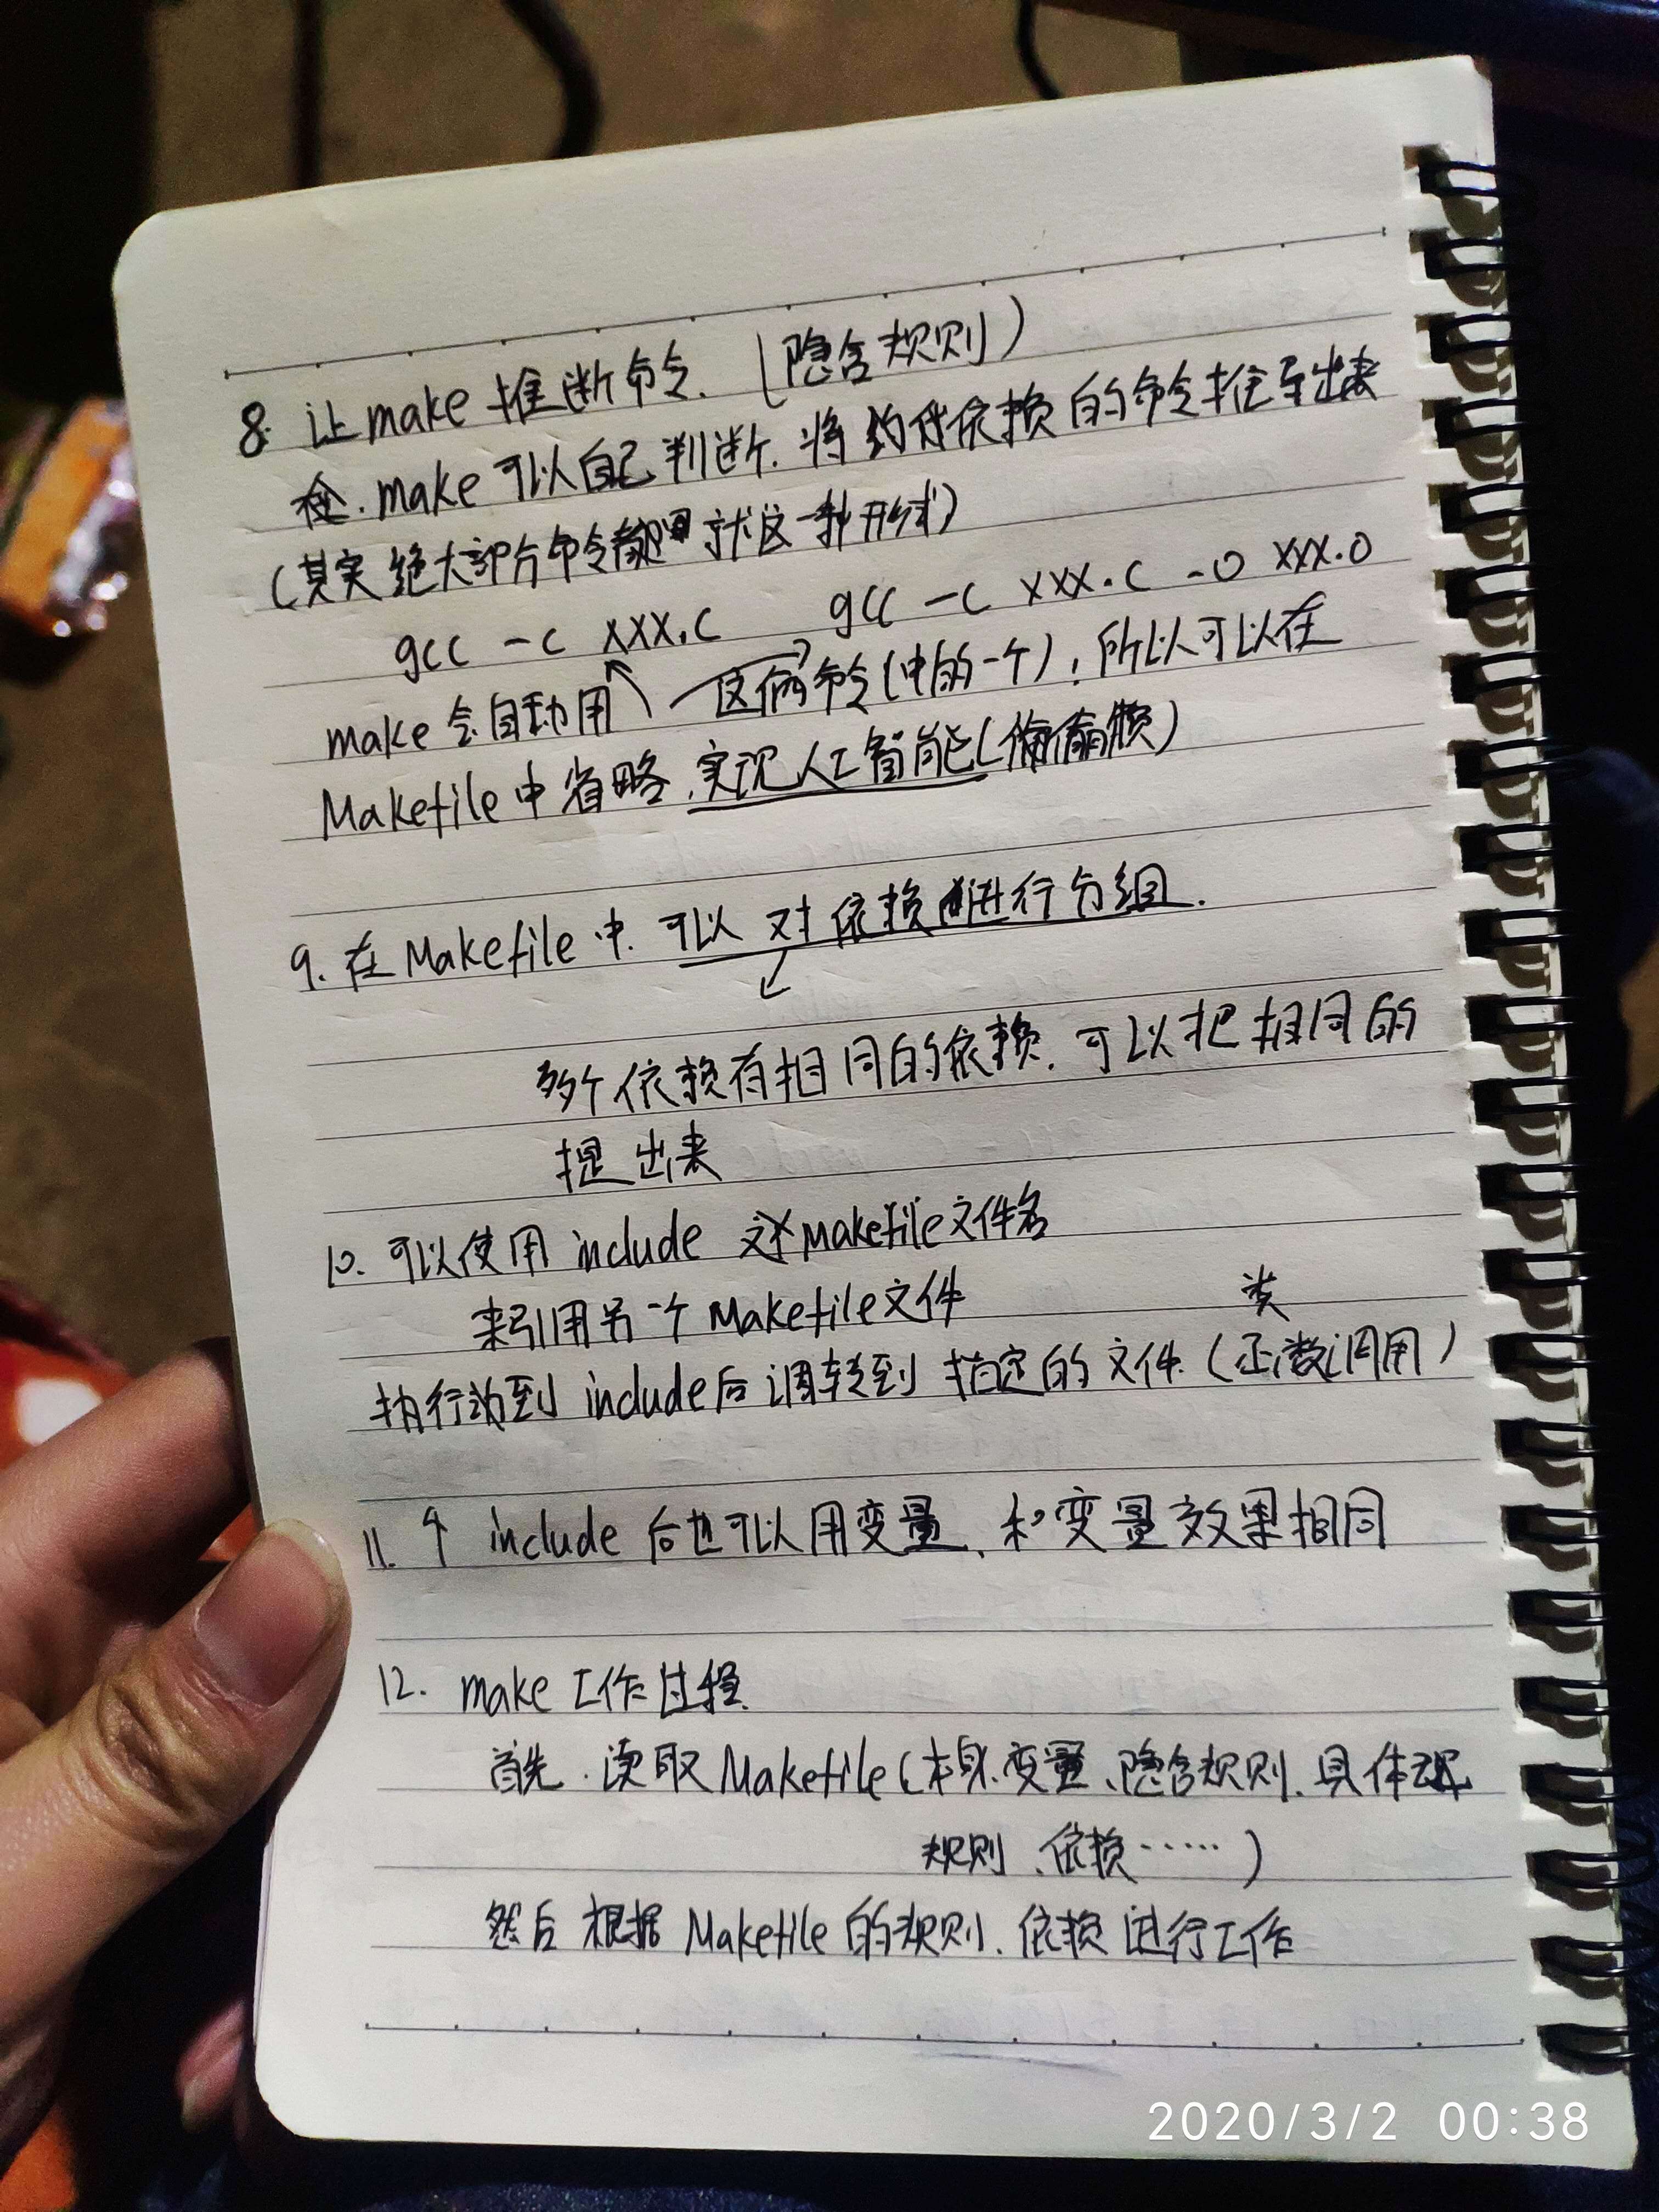 8. 让make推断命令.（隐含规则）
make可以自己判断.将依赖的命令推导出来
（其实绝大部分命令都就这一种形式）
gcc -c xxx.c gcc -c xxx.c -o xxx.o
make会自动用 这俩命令(中的一个)，所以可以在
Makefile中省略,实现人工智能(偷懒)
9. 在Makefile中.可以对依赖进行分组.
多个依赖有相同的依赖.可以把相同的
提出来
10. 可以使用 include Makefile文件名
来引用另一个Makefile文件
类
执行到include后调转到指定的文件.(函数调用)
11. ↑ include后也可以用变量、和变量效果相同
12. make工作过程.
首先.读取Makefile(本身.变量、隐含规则.具体
规则、依赖……)
然后根据Makefile的规则.依赖进行工作
2020/3/2 00:38